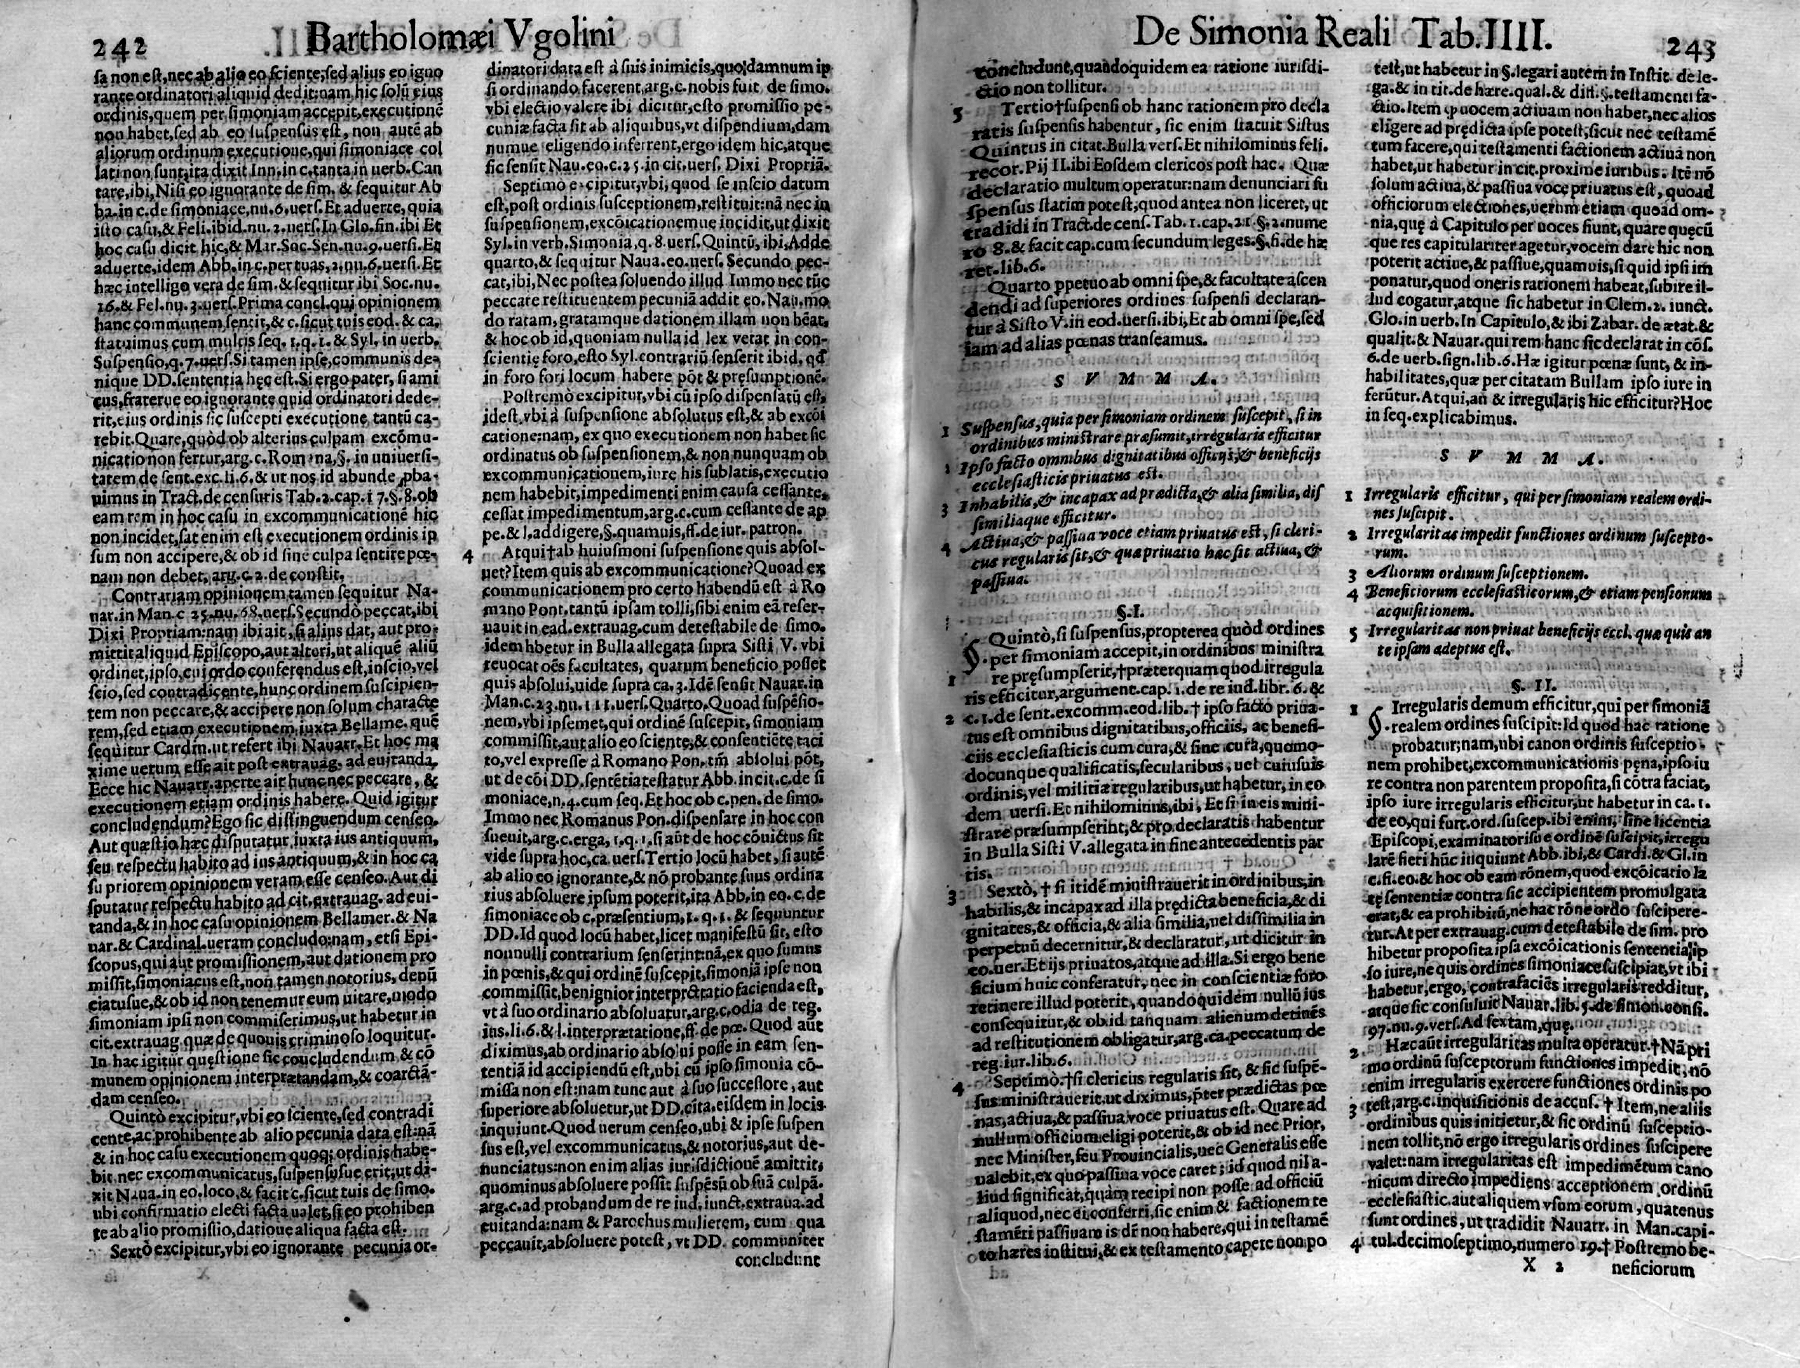 242 Bartholomæi Vgolini
sa non est, nec ab alio eo sciente, sed alius eo igno
rante ordinatori aliquid dedit: nam hic solũ eius
ordinis, quem per simoniam accepit, executionẽ
non habet, sed ab eo suspensus est, non autẽ ab
aliorum ordinum executione, qui simoniace col
lati non sunt, ita dixit Inn. in c. tanta in verb. Can
tare, ibi, Nisi eo ignorante de sim. & sequitur Ab
ba. in c. de simoniace, nu. 6. uers. Et aduerte, quia
isto casu, & Feli. ibid. nu. 2. uers. In Glo. fin. ibi Et
hoc casu dicit hic, & Mar. Soc. Sen. nu. 9. uersi. Et
aduerte, idem Abb. in c. per tuas, 2. nu. 6. uersi. Et
hæc intelligo vera de sim. & sequitur ibi Soc. nu.
16. & Fel. nu. 3. uers. Prima concl. qui opinionem
hanc communem sentit, & c. sicut tuis eod. & ca.
statuimus cum multis seq. 1. q. 1. & Syl. in verb.
Suspensio, q. 7. uers. Si tamen ipse, communis de-
nique DD. sententia hęc est. Si ergo pater, si ami
cus, fraterue eo ignorante quid ordinatori dede-
rit, eius ordinis sic suscepti executione tantũ ca-
rebit. Quare, quòd ob alterius culpam excõmu-
nicatio non fertur, arg. c. Romana, §. in uniuersi-
tatem de sent. exc. li. 6. & ut nos id abunde ꝓba-
uimus in Tract. de censuris Tab. 2. cap. 17. §. 8. ob
eam rem in hoc casu in excommunicationẽ hic
non incidet, sat enim est executionem ordinis ip
sum non accipere, & ob id sine culpa sentire pœ-
nam non debet, arg. c. 2. de constit.
Contrariam opinionem tamen sequitur Na-
uar. in Man. c 25. nu. 68. uers. Secundò peccat, ibi
Dixi Propriam: nam ibi ait, si alius dat, aut pro-
mittit aliquid Episcopo, aut alteri, ut aliquẽ aliũ
ordinet, ipso, cui ordo conferendus est, inscio, vel
scio, sed contradicente, hunc ordinem suscipien-
tem non peccare, & accipere non solum characte
rem, sed etiam executionem iuxta Bellame. quẽ
sequitur Cardin. ut refert ibi Nauarr. Et hoc ma
xime uerum esse ait post extrauag. ad euitanda,
Ecce hic Nauarr. aperte ait hunc nec peccare, &
executionem etiam ordinis habere. Quid igitur
concludendum? Ego sic distinguendum censeo.
Aut quæstio hæc disputatur iuxta ius antiquum,
seu respectu habito ad ius antiquum, & in hoc ca
su priorem opinionem veram esse censeo. Aut di
sputatur respectu habito ad cit. extrauag. ad eui-
tanda, & in hoc casu opinionem Bellamer. & Na
uar. & Cardinal. ueram concludo: nam, etsi Epi-
scopus, qui aut promissionem, aut dationem pro
missit, simoniacus est, non tamen notorius, denũ
ciatusue, & ob id non tenemur eum uitare, modo
simoniam ipsi non commiserimus, ut habetur in
cit. extrauag. quæ de quouis criminoso loquitur.
In hac igitur quęstione sic concludendum & cõ
munem opinionem interprætandam, & coarctã-
dam censeo.
Quintò excipitur, vbi eo sciente, sed contradi
cente, ac prohibente ab alio pecunia data est: nã
& in hoc casu executionem quoq; ordinis habe-
bit, nec excommunicatus, suspensusue erit, ut di-
xit Naua. in eo. loco, & facit c. sicut tuis de simo.
ubi confirmatio electi facta ualet, si eo prohiben
te ab alio promissio, datioue aliqua facta est.
Sextò excipitur, vbi eo ignorante pecunia or-
dinatori data est à suis inimicis, quo damnum ip
si ordinando facerent, arg. c. nobis fuit de simo.
vbi electio valere ibi dicitur, esto promissio pe-
cuniæ facta sit ab aliquibus, vt dispendium, dam
numue eligendo inferrent, ergo idem hic, atque
sic sensit Nau. eo. c. 25. in cit. uers. Dixi Propriã.
Septimo excipitur, vbi, quod se inscio datum
est, post ordinis susceptionem, restituit: nã nec in
suspensionem, excõicationemue incidit, ut dixit
Syl. in verb. Simonia, q. 8. uers. Quintũ, ibi, Adde
quarto, & sequitur Naua. eo. uers. Secundo pec-
cat, ibi, Nec postea soluendo illud Immo nec tũc
peccare restituentem pecuniã addit eo. Nau. mo
do ratam, gratamque dationem illam non hẽat,
& hoc ob id, quoniam nulla id lex vetat in con-
scientię foro, esto Syl. contrariũ senserit ibid, qđ
in foro fori locum habere põt & pręsumptionẽ.
Postremo excipitur, vbi cũ ipso dispensatũ est,
idest, vbi à suspensione absolutus est, & ab excõi
catione: nam, ex quo executionem non habet sic
ordinatus ob suspensionem, & non nunquam ob
excommunicationem, iure his sublatis, executio
nem habebit, impedimenti enim causa cessante,
cessat impedimentum, arg. c. cum cessante de ap
pe. & l. addigere, §. quamuis, ff. de iur. patron.
4 Atqui†ab huiusmoni suspensione quis absol-
uet? Item quis ab excommunicatione? Quoad ex
communicationem pro certo habendũ est à Ro
mano Pont. tantũ ipsam tolli, sibi enim eã reser-
uauit in ead. extrauag. cum detestabile de simo.
idem hbetur in Bulla allegata supra Sisti V. vbi
reuocat oẽs facultates, quarum beneficio posset
quis absolui, uide supra ca. 3. Idẽ sensit Nauar. in
Man. c. 23. nu. 111. uers. Quarto. Quoad suspẽsio-
nem, vbi ipsemet, qui ordinẽ suscepit, simoniam
commissit, aut alio eo sciente, & consentiẽte taci
to, vel expresse à Romano Pon. tm̃ absolui põt,
ut de cõi DD. sentẽtia testatur Abb. in cit. c. de si
moniace, n. 4. cum seq. Et hoc ob c. pen. de simo.
Immo nec Romanus Pon. dispensare in hoc con
sueuit, arg. c. erga, 1. q. 1. si aũt de hoc cõuictus sit
vide supra hoc, ca. uers. Tertio locũ habet, si autẽ
ab alio eo ignorante, & nõ probante suus ordina
rius absoluere ipsum poterit, ita Abb. in eo. c. de
simoniace ob c. præsentium, 1. q. 1. & sequuntur
DD. Id quod locũ habet, licet manifestũ sit, esto
nonnulli contrarium senserint: nã, ex quo sumus
in pœnis, & qui ordinẽ suscepit, simoniã ipse non
commissit, benignior interprętatio facienda est,
vt à suo ordinario absoluatur, arg. c. odia de reg.
ius. li. 6. & l. interprætatione, ff. de pœ. Quod aũt
diximus, ab ordinario absolui posse in eam sen-
tentiã id accipiendũ est, ubi cũ ipso simonia cõ-
missa non est: nam tunc aut à suo successore, aut
superiore absoluetur, ut DD. cita. eisdem in locis
inquiunt. Quod uerum censeo, ubi & ipse suspen
sus est, vel excommunicatus, & notorius, aut de-
nunciatus: non enim alias iurisdictionẽ amittit,
quominus absoluere possit suspẽsũ ob suã culpã.
arg. c. ad probandum de re iud. iunct. extraua. ad
euitanda: nam & Parochus mulierem, cum qua
peccauit, absoluere potest, vt DD. communiter
concludunt
De Simonia Reali Tab. IIII. 243
concludunt, quandoquidem ea ratione iurisdi-
ctio non tollitur.
5 Tertio†suspensi ob hanc rationem pro decla
ratis suspensis habentur, sic enim statuit Sistus
Quintus in citat. Bulla vers. Et nihilominus feli.
recor. Pij II. ibi Eosdem clericos post hac. Quæ
declaratio multum operatur: nam denunciari su
spensus statim potest, quod antea non liceret, ut
tradidi in Tract. de cens. Tab. 1. cap. 21. §. 2. nume
ro 8. & facit cap. cum secundum leges. §. fi. de hæ
ret. lib. 6.
Quarto ꝑpetuo ab omni spe, & facultate ascen
dendi ad superiores ordines suspensi declaran-
tur à Sisto V. in eod. uersi. ibi, Et ab omni spe, sed
iam ad alias pœnas transeamus.
S V M M A.
1 Suspensus, quia per simoniam ordinem suscepit, si in
ordinibus ministrare præsumit, irregularis efficitur
2 Ipso facto omnibus dignitatibus officijs, & beneficijs
ecclesiasticis priuatus est.
3 Inhabilis, & incapax ad prædicta, & alia similia, dis
similiaque efficitur.
4 Actiua, & passiua voce etiam priuatus est, si cleri-
cus regularis sit, & quæ priuatio hæc sit actiua, &
passiua.
§. I.
§. Quintò, si suspensus, propterea quòd ordines
per simoniam accepit, in ordinibus ministra
1 re pręsumpserit, †præterquam quod irregula
ris efficitur, argument. cap. 1. de re iud. libr. 6. &
2 c. 1. de sent. excomm. eod. lib. † ipso facto priua-
tus est omnibus dignitatibus, officiis, ac benefi-
ciis ecclesiasticis cum cura, & sine cura, quomo-
docunque qualificatis, secularibus, uel cuiusuis
ordinis, vel militiæ regularibus, ut habetur, in eo
dem uersi. Et nihilominus, ibi, Et si in eis mini-
strare præsumpserint, & pro declaratis habentur
in Bulla Sisti V. allegata in fine antecedentis par
tis.
3 Sextò, † si itidẽ ministrauerit in ordinibus, in
habilis, & incapax ad illa prędicta beneficia, & di
gnitates, & officia, & alia similia, uel dissimilia in
perpetuũ decernitur, & declaratur, ut dicitur in
eo. uer. Et ijs priuatos, atque ad illa. Si ergo bene
ficium huic conferatur, nec in conscientiæ foro
retinere illud poterit, quandoquidem nullũ ius
consequitur, & ob id tanquam alienum detinẽs
ad restitutionem obligatur, arg. ca. peccatum de
reg. iur. lib. 6.
4 Septimò, †si clericus regularis sit, & sic suspẽ-
sus ministrauerit, ut diximus, p̃ter prædictas pœ
nas, actiua, & passiua voce priuatus est. Quare ad
nullum officium eligi poterit, & ob id nec Prior,
nec Minister, seu Prouincialis, nec Generalis esse
ualebit, ex quo passiua voce caret; id quod nil a-
liud significat, quàm recipi non posse ad officiũ
aliquod, nec ei conferri, sic enim & factionem te
stamẽti passiuam is dẽ non habere, qui in testamẽ
to hæres institui, & ex testamento capere non po
test, ut habetur in §. legari autem in Instit. de le-
ga. & in tit. de hære. qual. & diff. §. testamenti fa-
ctio. Item ꝙ uocem actiuam non haber, nec alios
eligere ad prędicta ipse potest, sicut nec testamẽ
tum facere, qui testamenti factionem actiuã non
habet, ut habetur in cit. proxime iuribus. Itẽ nõ
solum actiua, & passiua voce priuatus est, quoad
officiorum electiones, uerum etiam quoad om-
nia, quę à Capitulo per uoces fiunt, quare quęcũ
que res capitulariter agetur, vocem dare hic non
poterit actiue, & passiue, quamuis, si quid ipsi im
ponatur, quod oneris rationem habeat, subire il-
lud cogatur, atque sic habetur in Clem. 2. iunct.
Glo. in uerb. In Capitulo, & ibi Zabar. de ætat. &
qualit. & Nauar. qui rem hanc sic declarat in cõs.
6. de uerb. sign. lib. 6. Hæ igitur pœnæ sunt, & in-
habilitates, quæ per citatam Bullam ipso iure in
ferũtur. Atqui, an & irregularis hic efficitur? Hoc
in seq. explicabimus.
S V M M A.
1 Irregularis efficitur, qui per simoniam realem ordi-
nes suscipit.
2 Irregularitas impedit functiones ordinum suscepto-
rum.
3 Aliorum ordinum susceptionem.
4 Beneficiorum ecclesiasticorum, & etiam pensionum
acquisitionem.
5 Irregularitas non priuat beneficijs eccl. quæ quis an
te ipsam adeptus est.
§. II.
1 §. Irregularis demum efficitur, qui per simoniã
realem ordines suscipit: Id quod hac ratione
probatur; nam, ubi canon ordinis susceptio-
nem prohibet, excommunicationis pęna, ipso iu
re contra non parentem proposita, si cõtra faciat,
ipso iure irregularis efficitur, ut habetur in ca. 1.
de eo, qui furt. ord. suscep. ibi enim, sine licentia
Episcopi, examinatorisue ordinẽ suscipit, irregu
larẽ fieri hũc inquiunt Abb. ibi, & Cardi. & Gl. in
c. fi. eo. & hoc ob eam rõnem, quod excõicatio la
tę sententiæ contra sic accipientem promulgata
erat, & ea prohibitũ, ne hac rõne ordo suscipere-
tur. At per extrauag. cum detestabile de sim. pro
hibetur proposita ipsa excõicationis sententia, ip
so iure, ne quis ordines simoniace suscipiat, vt ibi
habetur, ergo, contrafaciẽs irregularis redditur,
atque sic consuluit Nauar. lib. 5. de simon. consi.
97. nu. 9. vers. Ad sextam, quę.
2 Hæc aũt irregularitas multa operatur. †Nã pri
mo ordinũ susceptorum functiones impedit; nõ
enim irregularis exercere functiones ordinis po
3 test, arg. c. inquisitionis de accus. † Item, ne aliis
ordinibus quis initietur, & sic ordinũ susceptio-
nem tollit, nõ ergo irregularis ordines suscipere
valet: nam irregularitas est impedimẽtum cano
nicum directo impediens acceptionem ordinũ
ecclesiastic. aut aliquem vsum eorum, quatenus
sunt ordines, ut tradidit Nauatr. in Man. capi-
4 tul. decimoseptimo, numero 19. † Postremo be-
X 2 neficiorum